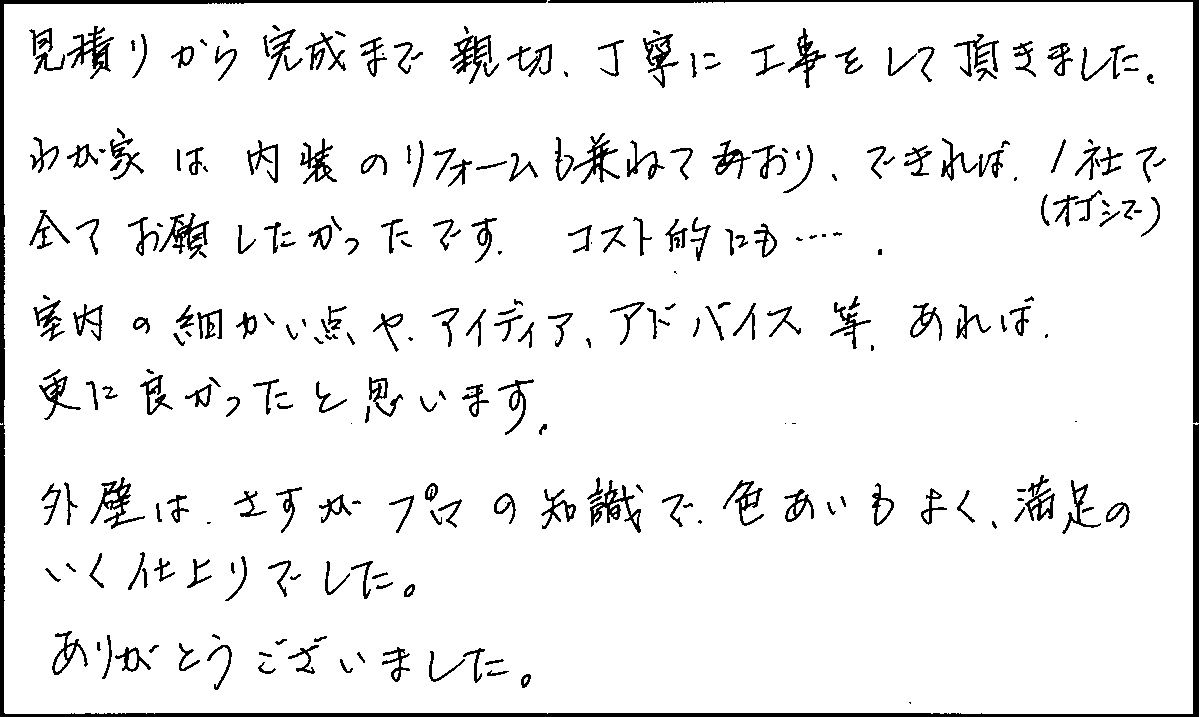 見積りから完成まで親切、丁寧に工事をして頂きました。
わが家は内装のリフォームも兼ねてあおり、できれば、1社で
(オゴシで)
全てお願したかったです。コスト的にも……。
室内の細かい点や、アイディア、アドバイス等、あれば、
更に良かったと思います。
外壁は、さすがプロの知識で、色あいもよく、満足の
いく仕上りでした。
ありがとうございました。